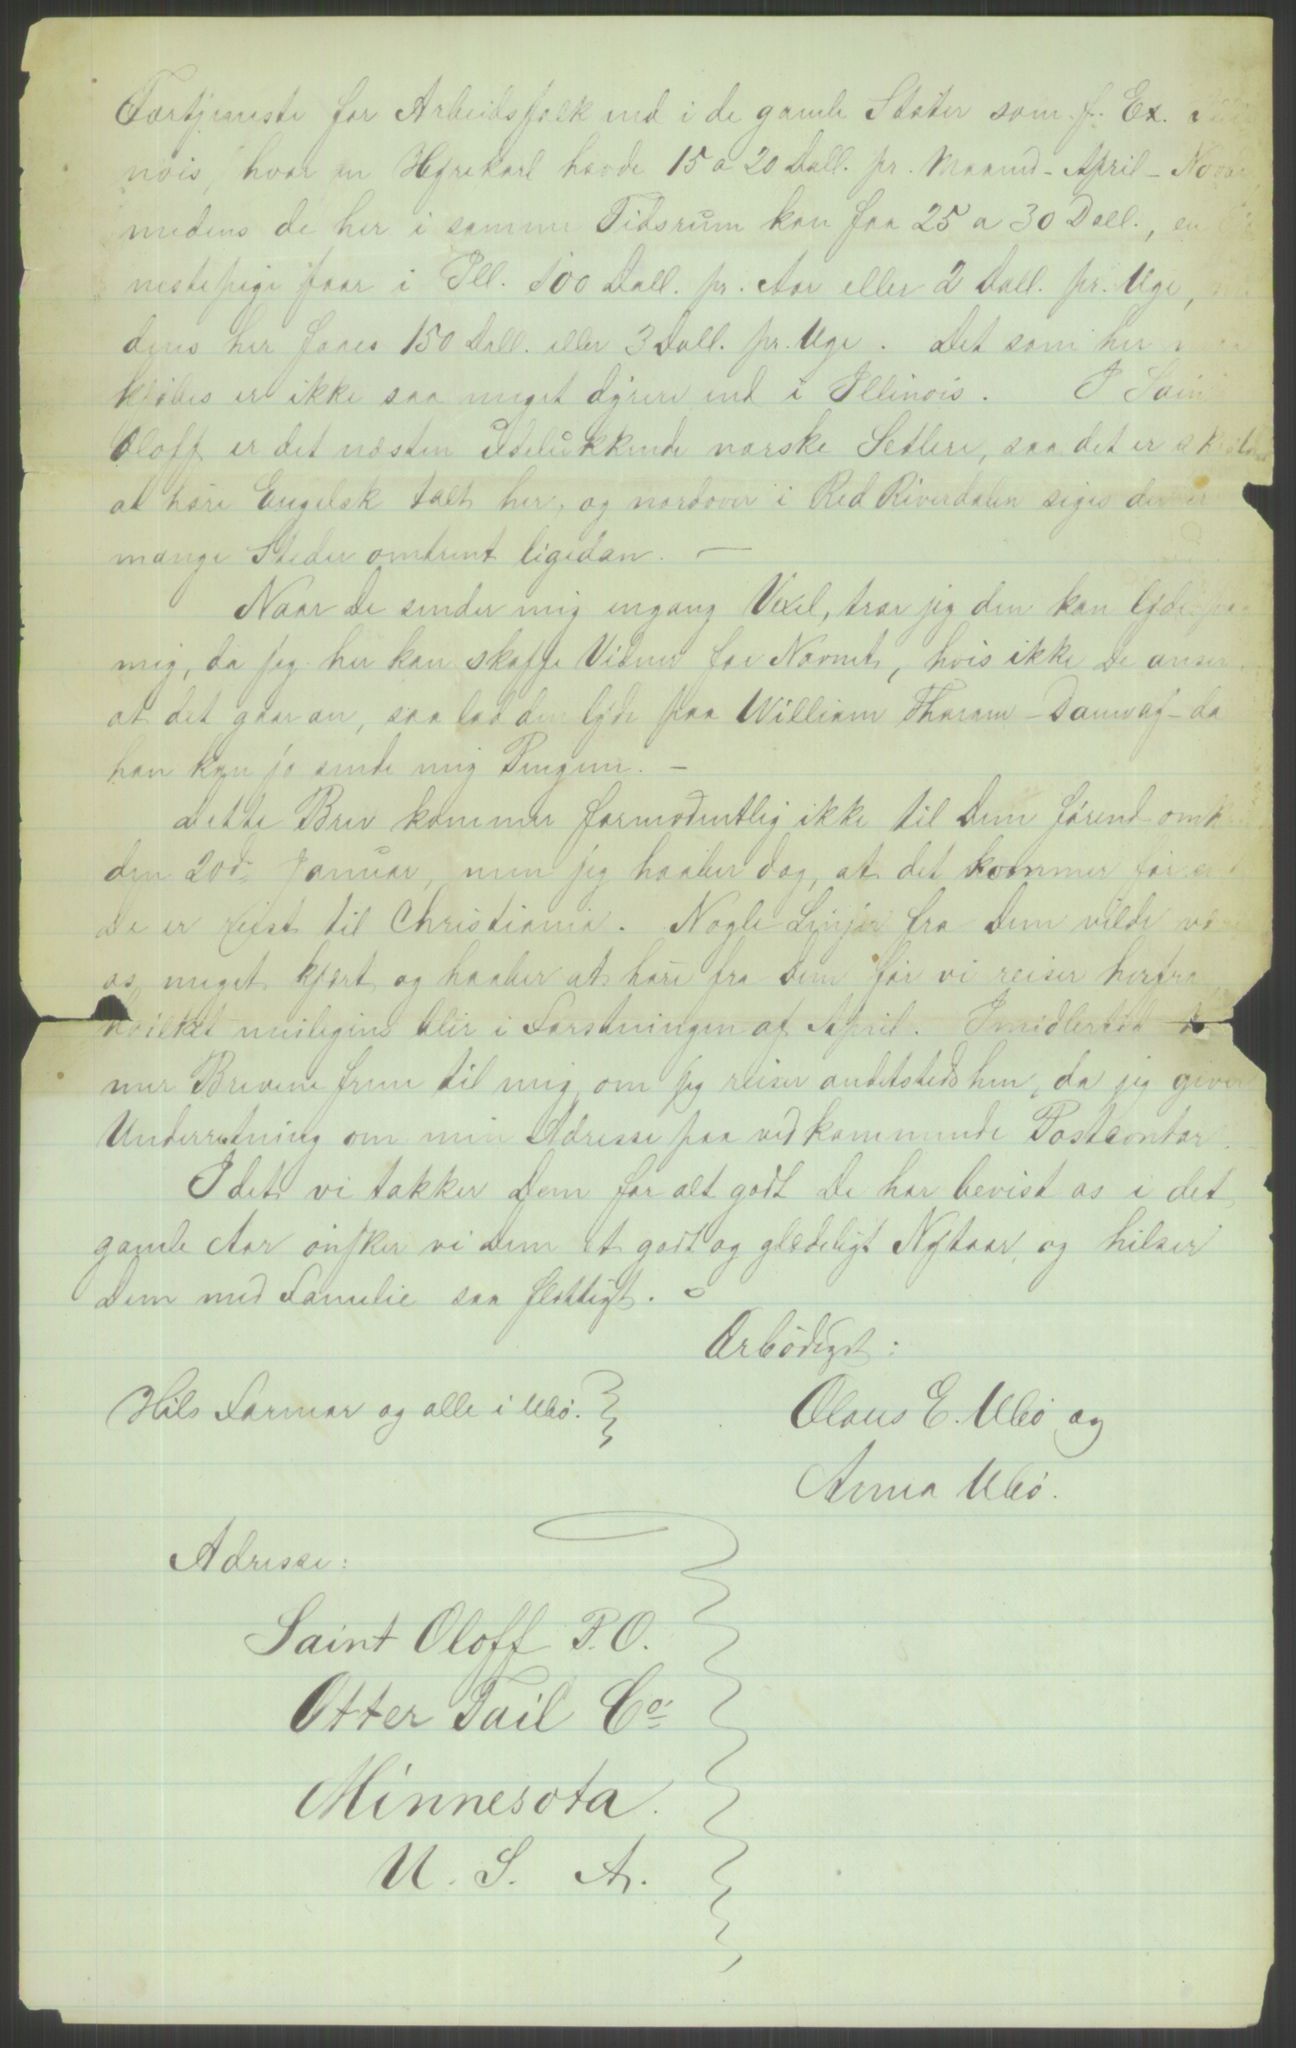 Fortjeneste for Arbeidsfolk end i de gamle Stater som f. Ex. Illi
nois, hvor en Hyrekarl havde 15 a 20 Dall. pr. Maaned - April - Novbr.
medens de her i samme Tidsrum kan faa 25 a 30 Doll., en
nestepige faar i Ill. 100 Dall. pr. Aar eller 2 Dall. pr. Uge, me
dens her faaes 150 Dall. eller 3 Dall. pr. Uge. Det som her maa
kjöbes er ikke saa meget dyrere end i Illinois. I Saint
Oloff er det næsten udelukkende norske Setlere, saa det er
at høre Engelsk talt her, og nordover i Red Riverdalen siges der er
mange Steder omtrent ligedan. —
Naar De sender mig engang Vexel, tror jeg den kan lyde paa
mig, da jeg her kan skaffe Vidner for Navnet, hvis ikke De anser
at det gaar an, saa lad den lyde paa William Tharam - - da
han kan jo sende mig Pengene. —
Dette Brev kommer formodentlig ikke til Dem førend omkr
den 20de Januar, men jeg haaber dog, at det kommer før end
De er reist til Christiania. Nogle Linjer fra Dem vilde være
os meget kjært og haaber at høre fra Dem før vi reiser herfra
hvilket neiligens blir i Forstningen af April. Imidlertid kom
mer Brevene frem til mig, om jeg reiser andetsteds hen, da jeg giver
Underretning om min Adresse paa vedkommende Postcontor.
Idet vi takker Dem for alt godt De har bevist os i det
gamle Aar ønsker vi Dem et godt og glædeligt Nytaar og hilser
Dem med Familie saa flittigt.
Ærbödigst:
Hils Farmor og alle i Ulbö.
Olaus E. Ulbö og
Anna Ulbö.
Adresse:
Saint Oloff P.O.
Otter Tail Co
Minnesota.
U. S. A.